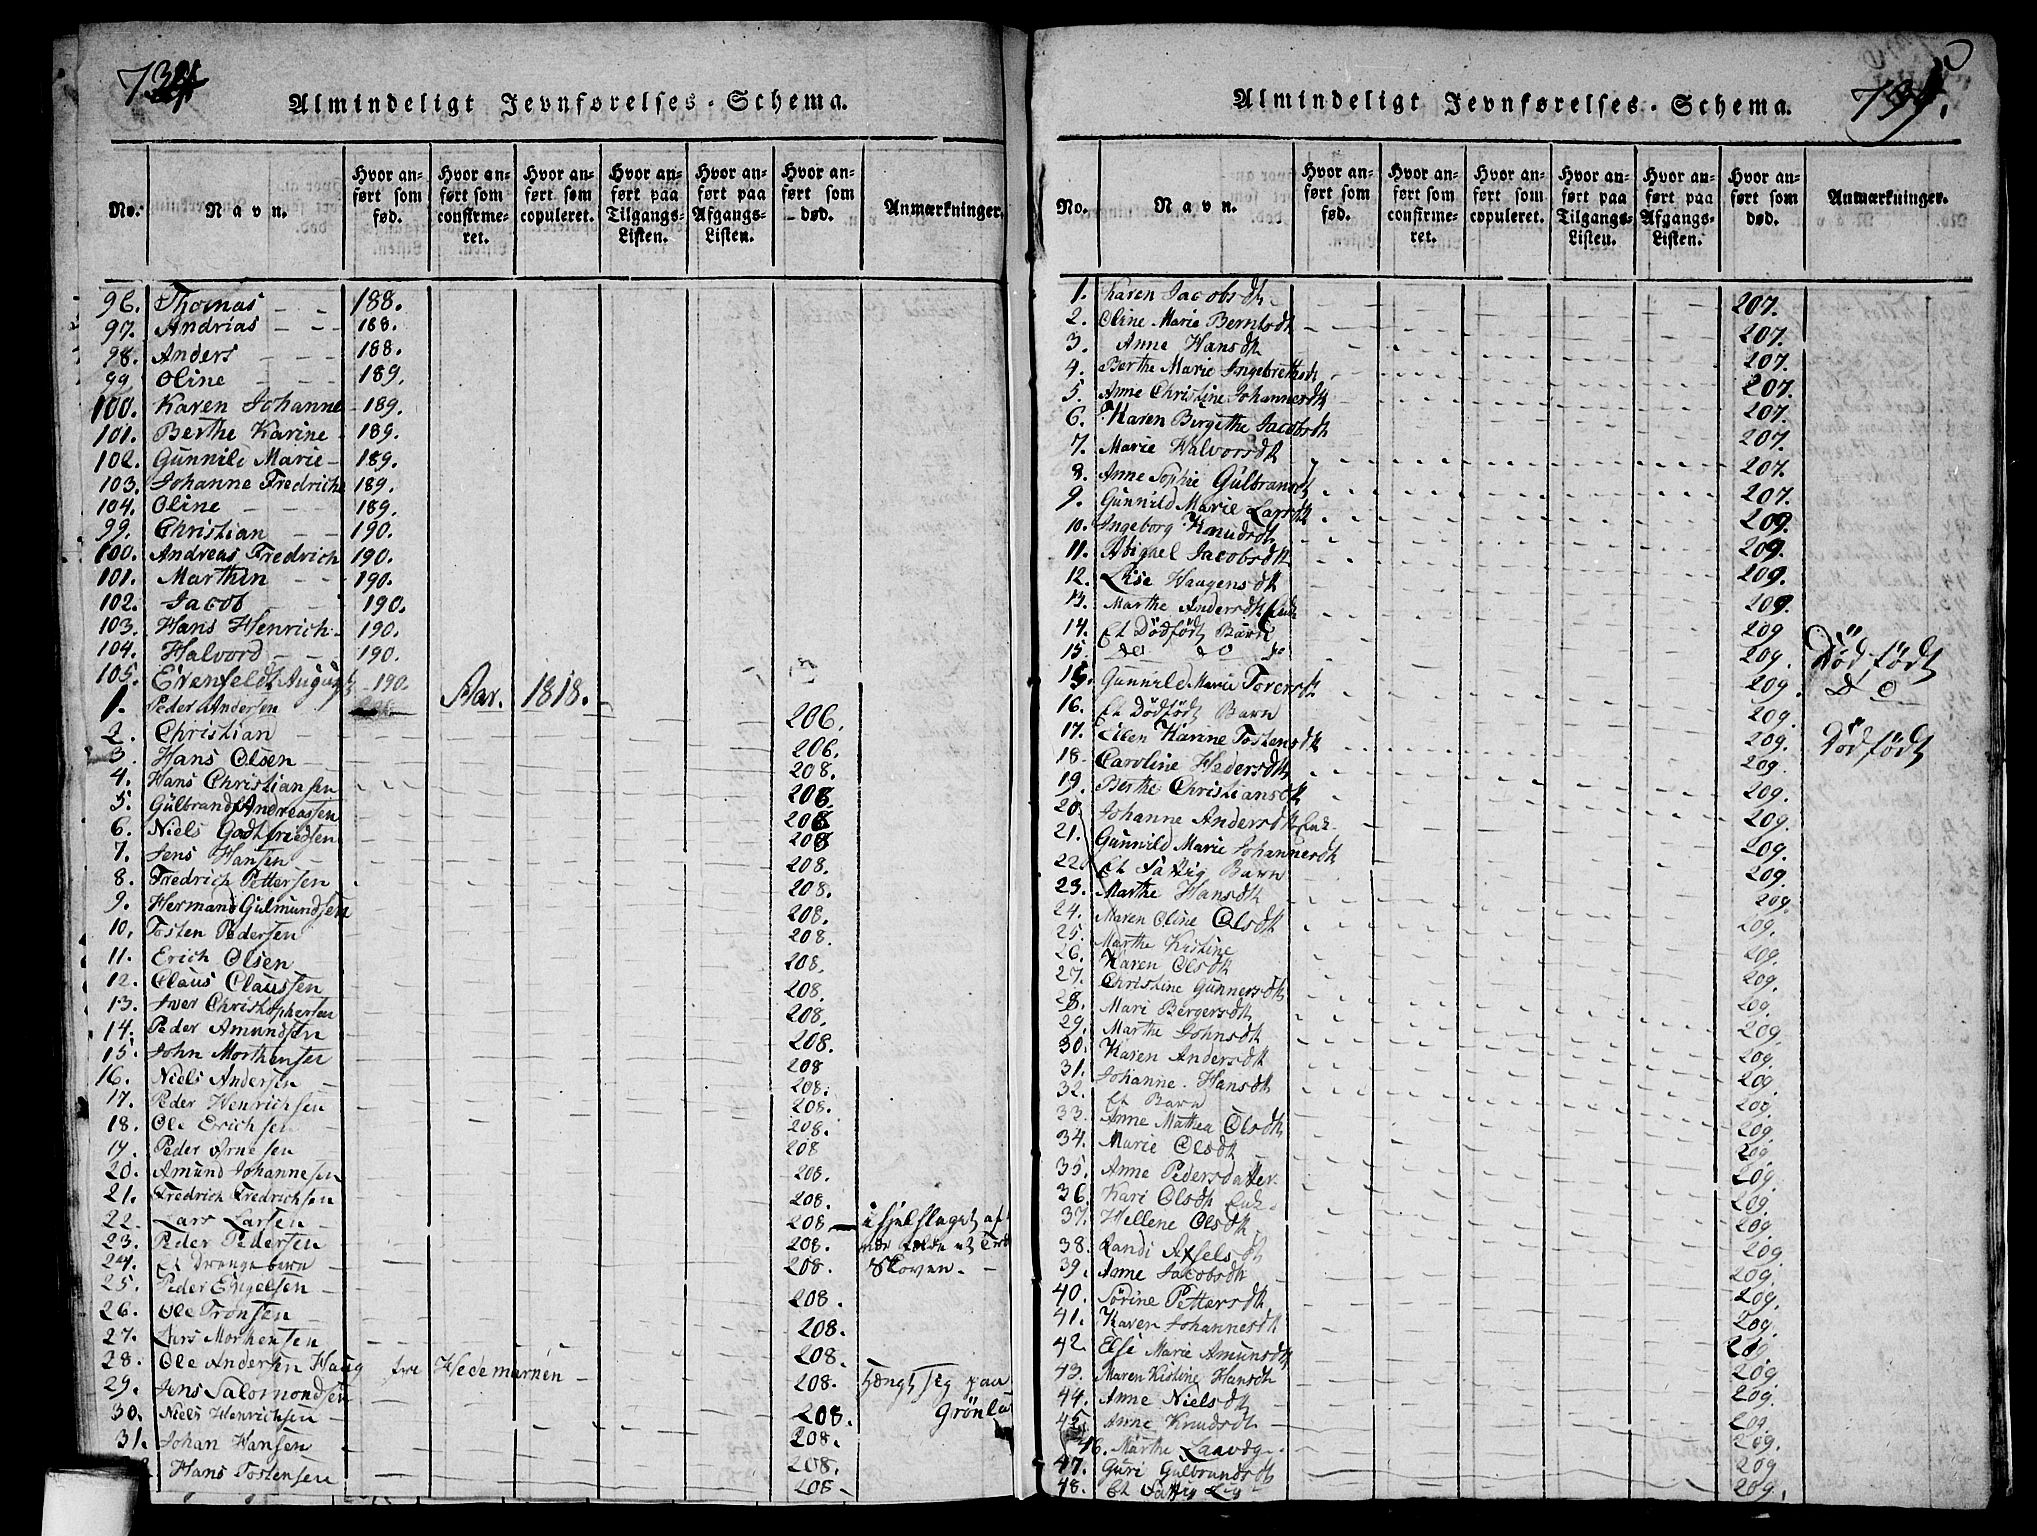 Almindeligt Jevnførelses-Schema.
No. Navn. Hvor anført som fød. Hvor anført som confirmeret. Hvor anført som copuleret. Hvor anført paa Tilgangs-Listen. Hvor anført paa Afgangs-Listen. Hvor anført som død. Anmærkninger.
96. Thomas 188.
97. Andrias 188.
98. Anders 188.
99. Oline 189.
100. Karen Johanne 189.
101. Berthe Karine 189.
102. Gunnild Marie 189.
103. Johanne Fredriche 189.
104. Oline 189.
99. Christian 190.
100. Andreas Fredrich 190.
101. Marthin 190.
102. Jacob 190.
103. Hans Henrich 190.
104. Halvord 190.
105. Evenfeldt August 190.
Aar. 1818.
1. Peder Andersen 206.
2. Christian 206.
3. Hans Olsen 208.
4. Hans Christiansen 208
5. Gülbrand Andreassen 208
6. Niels Godtfriedsen 208
7. Jens Hansen 208.
8. Fredrich Pettersen 208.
9. Hermand Gulmundsen 208.
10. Tosten Pedersen 208.
11. Erich Olsen 208.
12. Claus Claussen 208.
13. Iver Christophersen 208.
14. Peder Amundsen 208.
15. John Morthensen 208
16. Niels Andersen 208.
17. Peder Henrichsen 208.
18. Ole Erichsen 208.
19. Peder Arnesen 208
20. Amund Johannesen 208.
21. Fredrich Fredrichsen 208.
22. Lars Larsen 208 ihjelslaget af
23. Peder Pedersen 208.
24. Et Drengebarn 208. Skoven.
25. Peder Engelsen
26. Ole Tronsen 208.
27. Lars Morthensen 208.
28. Ole Andersen Haug fra Hedemarnen 208.
29. Jens Salomondsen 208. hængt sig paa
30. Niels Henrichsen 208. Grønla
31. Johan Hansen 208.
Hans Tostensen 208.
208
Almindeligt Jevnførelses-Schema.
No. Navn. Hvor anført som fød. Hvor anført som confirmeret. Hvor anført som copuleret. Hvor anført paa Tilgangs-Listen. Hvor anført paa Afgangs-Listen. Hvor anført som død. Anmærkninger.
1. Karen Jacobsdtr 207.
2. Oline Marie Berntsdtr 207.
3. Anne Hansdtr 207.
4. Berthe Marie Ingebrethsdt 207.
5. Anne Christine Johannesdtr 207.
6. Karen Birgithe Jacobsdtr 207.
7. Marie Halvorsdtr 207.
8. Anne Sophie Gülbransdt 207.
9. Gunnild Marie Larsdtr 209.
10. Ingeborg Knudsdtr 209.
11. Abigael Jacobsdtr 209.
12. Lise Haagensdtr 209.
13. Marthe Andersdtr Enk 209
14. Et Dödfödt Barn 209. Död födt
15. do do do 209. do
15. Gunnild Marie Toresdtr 209.
16. Et Dödfödt Barn 209. Dödfödt
17. Ellen Karine Tostensdtr 209.
18. Caroline Pedersdtr 209.
19. Berthe Christiansdtr 209.
20. Johanne Andersdtr Enk. 209.
21. Gunnild Marie Johannesdtr 209.
22. Et Fattig Barn 209.
23. Marthe Hansdtr 209.
24. Maren Oline Olsdtr 209.
25. Marthe Kistine 209.
26. Karen Olsdtr 209.
27. Christine Gunnersdtr 209.
28. Mari Bergersdtr 209.
29. Marthe Johnsdtr 209.
30. Karen Andersdtr 209.
31. Johanne Hansdtr 209.
32. Et Barn 209.
33. Anne Mathea Olsdtr 209.
34. Marie Olsdtr 209.
35. Anne Pedersdatter. 209.
36. Kari Olsdtr Enk. 209.
37. Hellene Olsdtr 209.
38. Randi Axelsdtr 209.
39. Anne Jacobsdtr 209.
40. Sörine Pettersdtr 209.
41. Karen Johannesdtr 209.
42. Else Marie Amunsdtr 209.
43. Maren Kistine Hansdtr 209.
44. Anne Nielsdtr 209.
45. Anne Knudsdtr 209.
46. Marthe 209.
47. Guri Gulbrandsdtr 209
48. Et Fattig Lig 209.